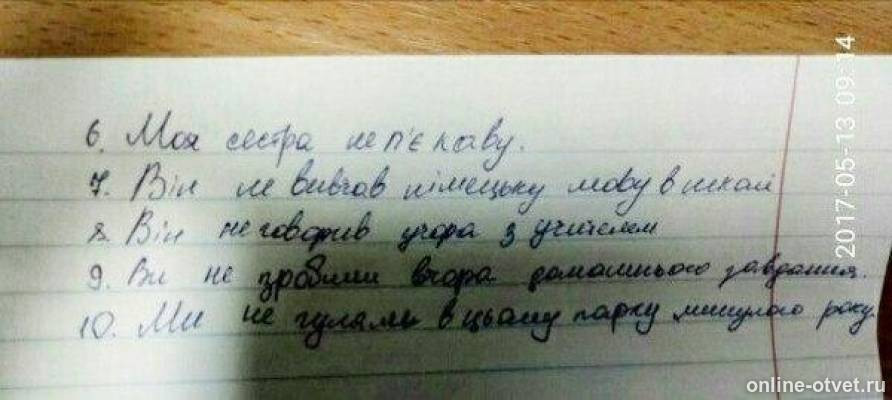 6. Моя сестра не п'є каву.
7. Він не вивчав німецьку мову в школі
8. Він не говорив учора з учителем
9. Ви не зробили вчора домашнього завдання.
10. Ми не гуляли в цьому парку минулого року.
2017-05-13 09:14
online-otvet.ru